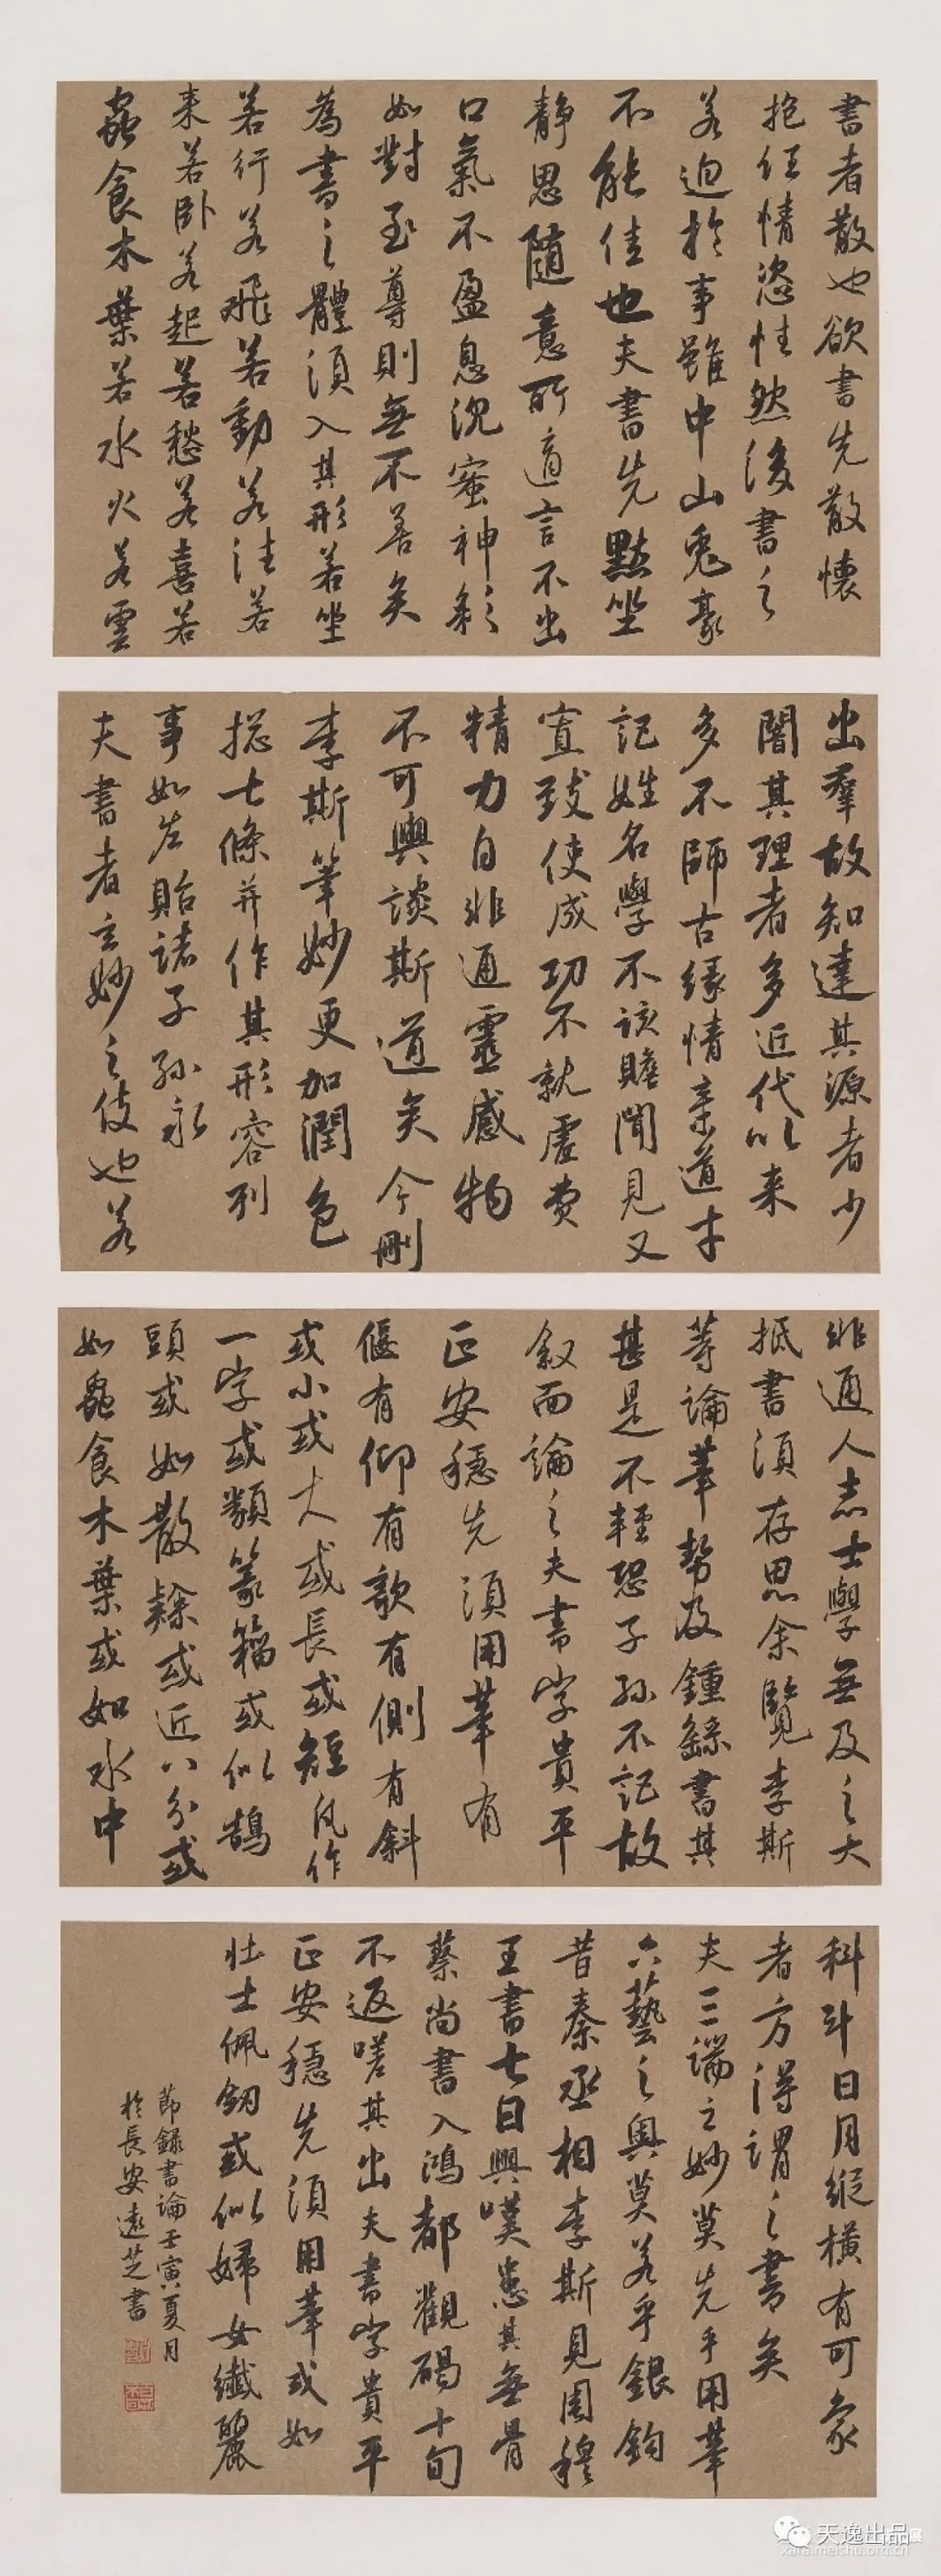 書者散也欲書先散懷
抱任情恣性然後書之
若迫於事雖中山兔豪
不能佳也夫書先默坐
靜思隨意所適言不出
口氣不盈息沉蜜神彩
如對至尊則無不善矣
為書之體須入其形若坐
若行若飛若動若往若
来若卧若起若愁若喜若
蟲食木葉若水火若雲
出羣故知達其源者少
闇其理者多近代以来
多不師古緣情棄道才
記姓名學不該贍聞見又
寡致使成功不就虛費
精力自非通靈感物
不可與談斯道矣今刪
李斯筆妙更加潤色
揔七條并作其形容列
事如左貽諸子孫永
夫書者玄妙之伎也若
非通人志士學無及之大
抵書須存思余覽李斯
等論筆勢及鍾繇書其
甚是不輕恐子孫不記故
叙而論之夫書字貴平
正安穩先須用筆有
偃有仰有欹有側有斜
或小或大或長或短凡作
一字或類篆籀或似鵠
頭或如散隸或近八分或
如蟲食木葉或如水中
科斗日月縱橫有可象
者方得謂之書矣
夫三端之妙莫先乎用筆
六藝之奧莫若乎銀鉤
昔秦丞相李斯見周穆
王書七日興嘆患其無骨
蔡尚書入鴻都觀碣十旬
不返嗟其出夫書字貴平
正安穩先須用筆或如
壯士佩劒或似婦女纖麗
節録書論壬寅夏月
於長安遠芝書
天逸出品
xafa.meishu.org.cn